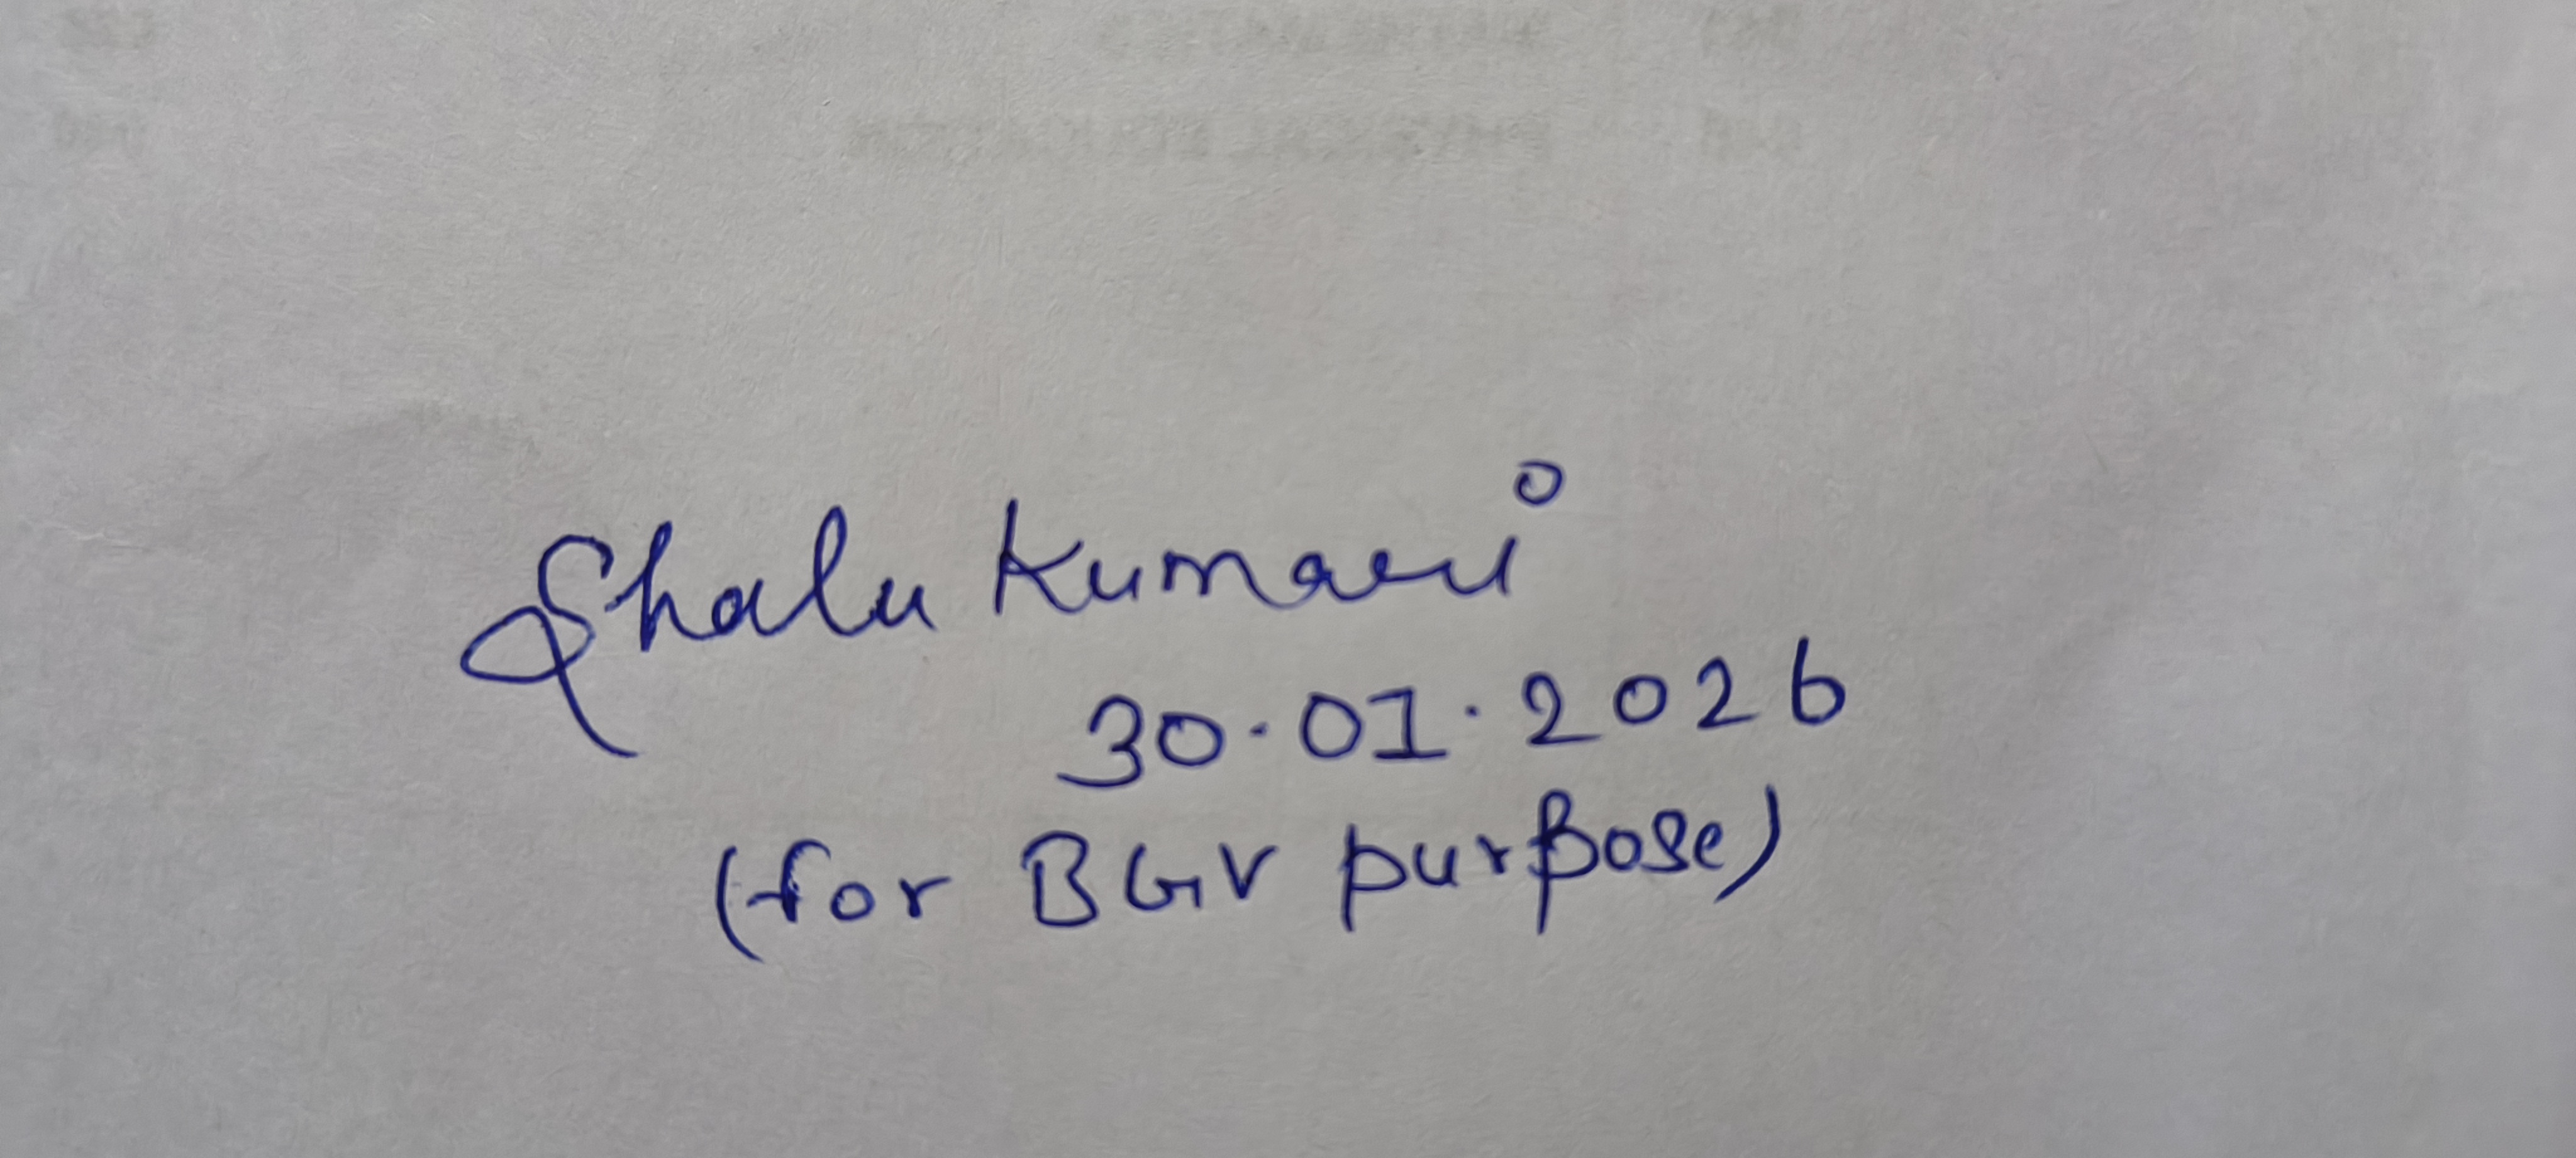 Shalu Kumari
30.01.2026
(for BGV purpose)